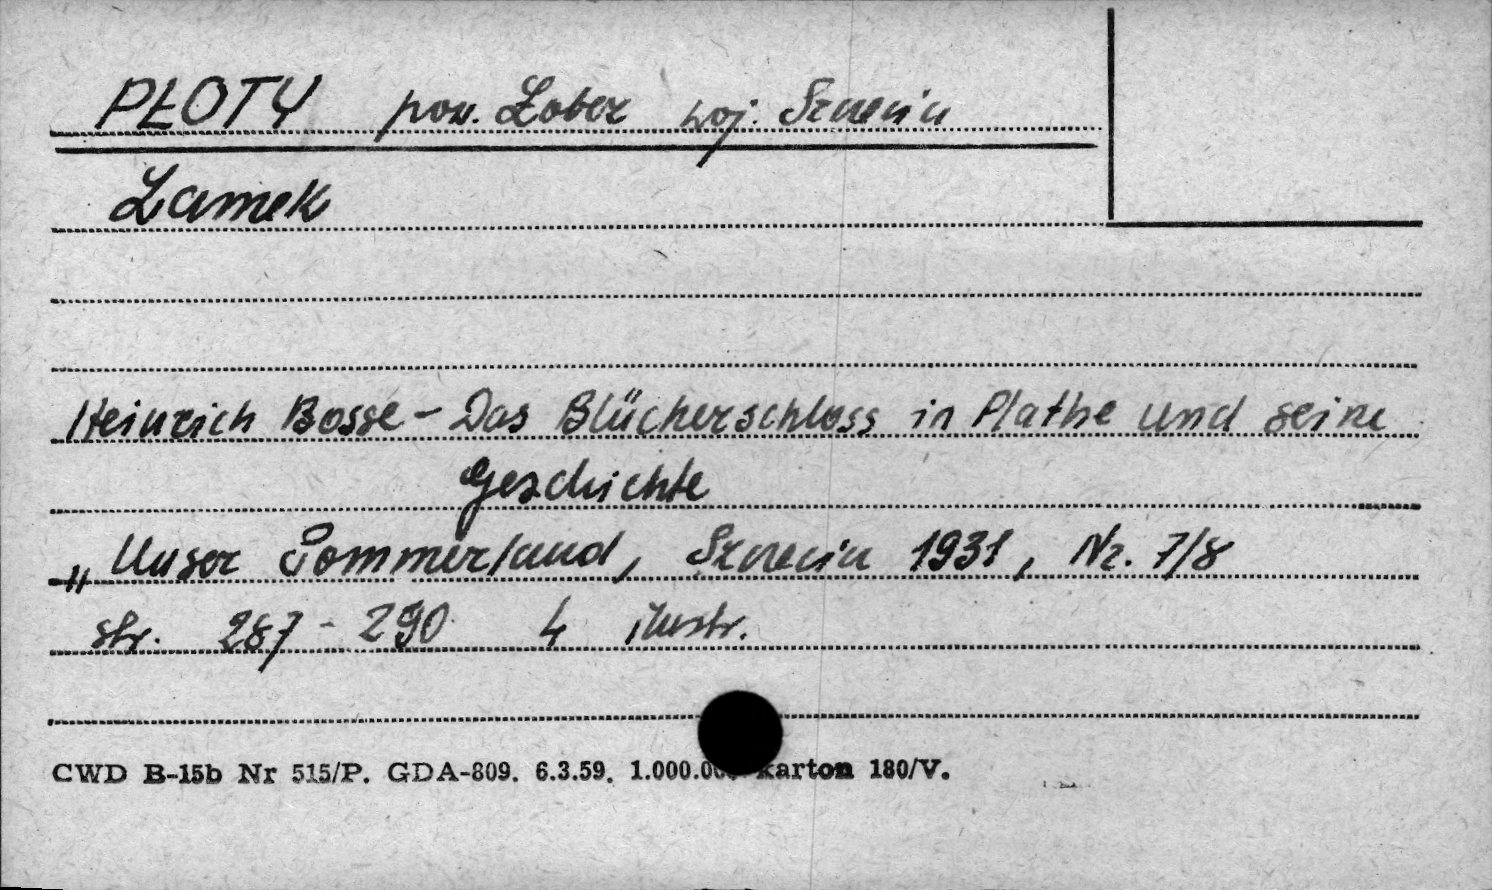 PŁOTY pow. Łobez woj. Szczecin
Zamek
Heinrich Bosse - Das Blücherschloss in Plathe und seine
Geschichte
„Unser Pommerland, Szczecin 1931, Nr. 7/8
str. 287 - 290 4 ilustr.
CWD B-15b Nr 515/P. GDA-809. 6.3.59. 1.000.00 karton 180/V.